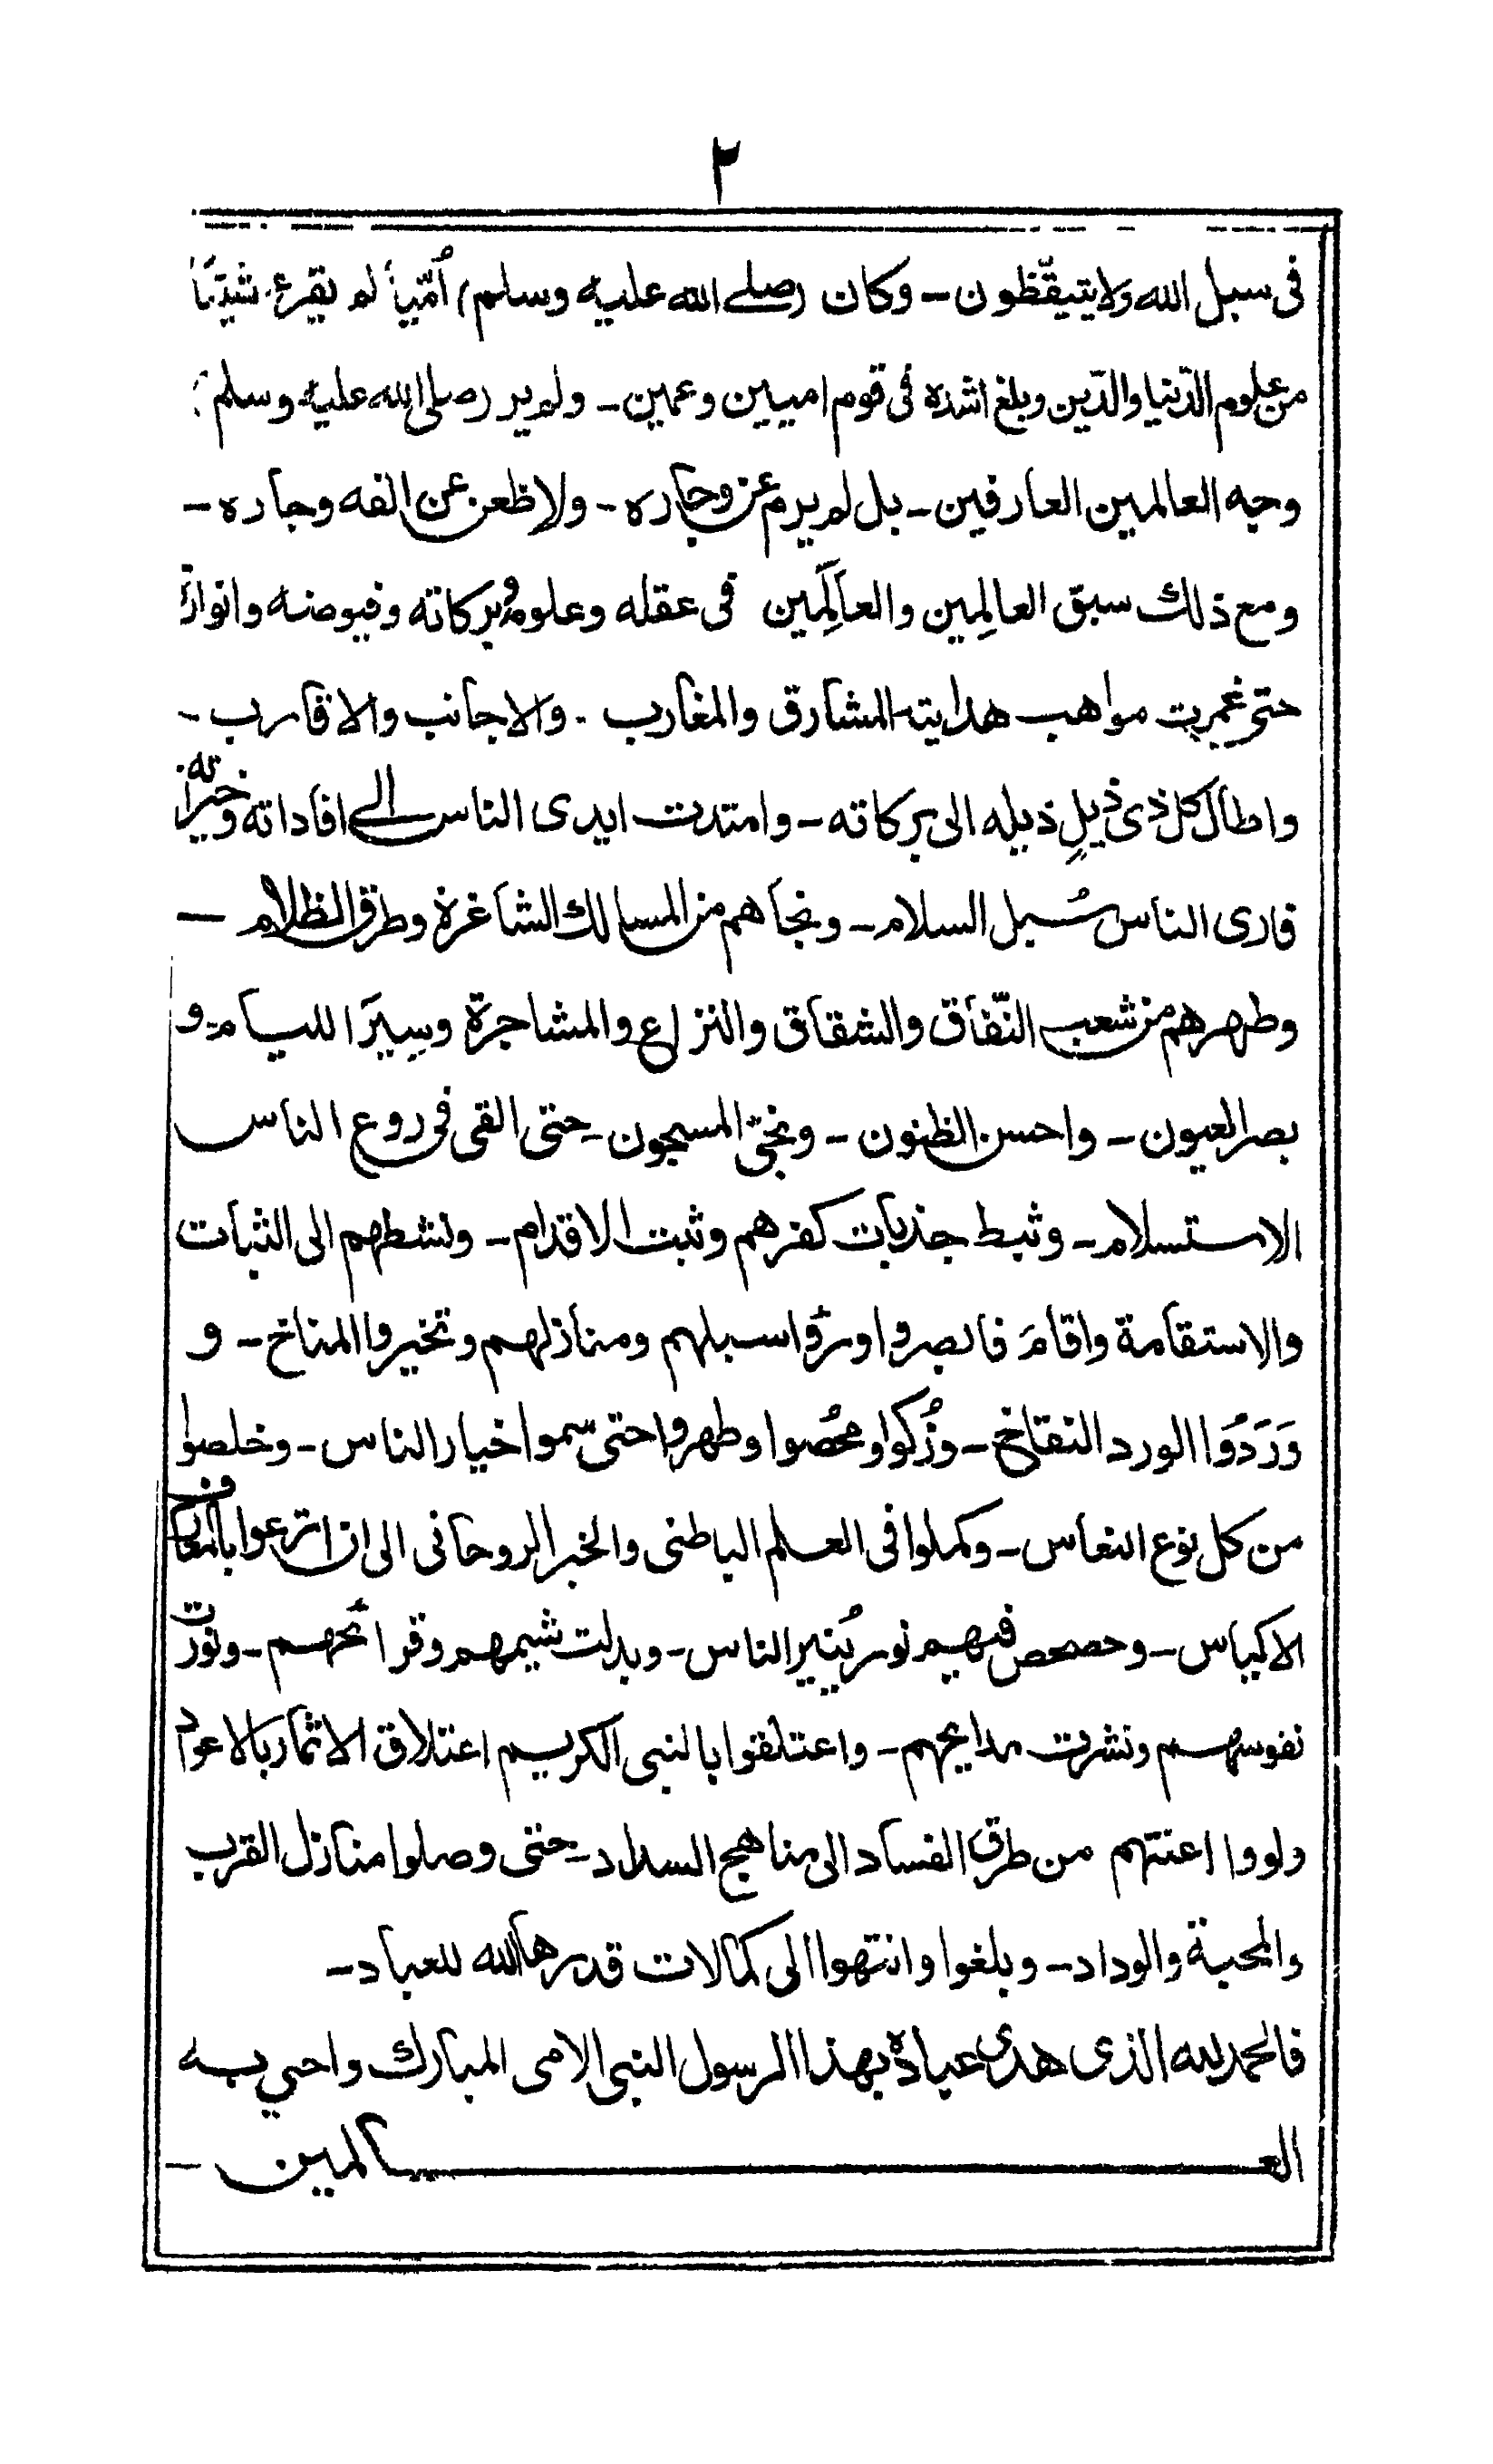 ٢
فی سبل الله ولا یتیقّظون - وکان (صلے الله علیه وسلم) اُمّیاً لم یقرء شیئًا
من علوم الدّنیا والدّین وبلغ اشده فی قوم امیین وعمین - ولم یر (صلی الله علیه وسلم)
وجه العالمین العارفین - بل لم یرم عن وجاره - ولا ظعن عن الفه وجاره -
ومع ذلك سبق العالِمین والعالَمین فی عقله وعلومه وبرکاته وفیوضه وانواره
حتی غمرت مواهب هدایته المشارق والمغارب - والاجانب والاقارب -
واطال کل ذی ذیلٍ ذیله الی برکاته - وامتدت ایدی الناس الے افاداته وخیراته
فاری الناس سُبل السلام - ونجاهم من المسالك الشاغرة وطرق الظلام -
وطهرهم من شعب النّفاق والشقاق والنزاع والمشاجرة وسِیَر اللیام - و
بصر العیون - واحسن الظنون - ونجّی المسجون - حتی القی فی روع الناس
الاستسلام - وثبط جذبات کفرهم وثبت الاقدام - ونشطهم الی الثبات
والاستقامة واقامَ فابصروا ورؤا سبلهم ومنازلهم وتخیروا المناخ - و
وَرَدُوا الورد النقاخ - وزُکوا ومُحّصوا وطهروا حتی سموا خیار الناس - وخلصوا
من کل نوع النعاس - وکملوا فی العلم الباطنی والخبر الروحانی الی ان اترعوا بالمعارف
الاکیاس - وحصحص فیهم نور یُنیر الناس - وبدلت شیمهم وقرائحهم - ونورت
نفوسهم ونشرت مدایحهم - واعتلقوا بالنبی الکریم اعتلاق الاثمار بالاعواد
ولووا اعنتهم من طرق الفساد الی مناهج السداد - حتی وصلوا منازل القرب
والمحبة والوداد - وبلغوا وانتهوا الی کمالات قدرها الله للعباد -
فالحمد لله الذی هدی عباده بهذا الرسول النبی الامی المبارك واحیی به
العالمین -